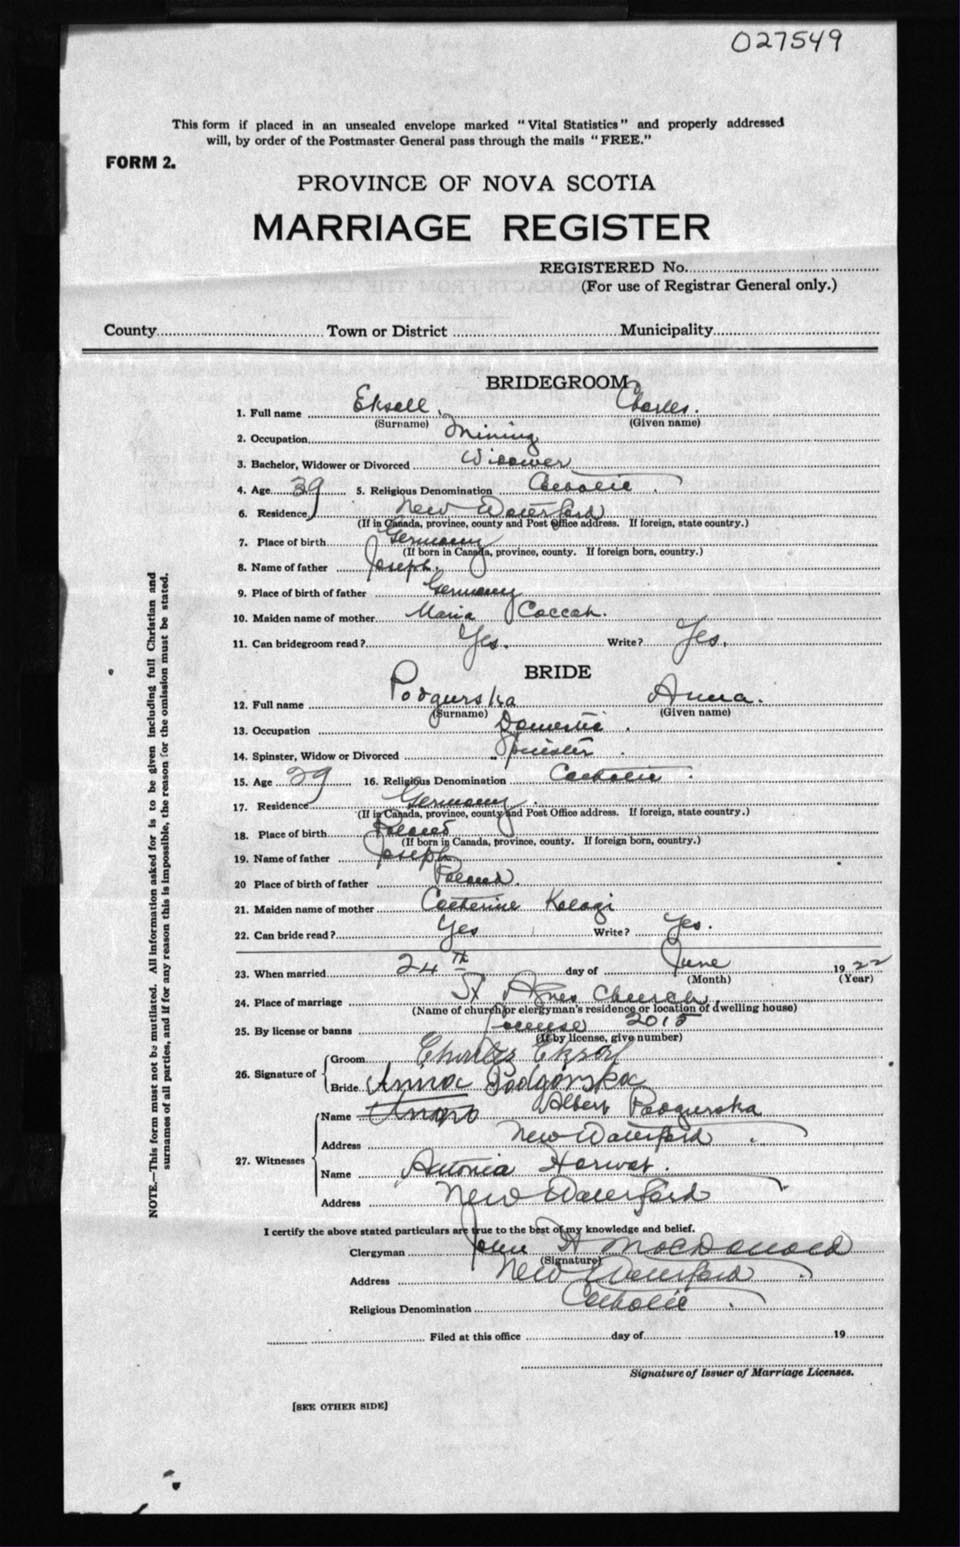 027549
This form if placed in an unsealed envelope marked "Vital Statistics" and properly addressed
will, by order of the Postmaster General pass through the mails "FREE."
FORM 2.
PROVINCE OF NOVA SCOTIA
MARRIAGE REGISTER
REGISTERED No.
(For use of Registrar General only.)
County Town or District Municipality
BRIDEGROOM
1. Full name Eksall, Charles.
(Surname) (Given name)
2. Occupation Mining
3. Bachelor, Widower or Divorced Widower
4. Age 39 5. Religious Denomination Catholic
6. Residence New Waterford
(If in Canada, province, county and Post Office address. If foreign, state country.)
7. Place of birth Germany
(If born in Canada, province, county. If foreign born, country.)
8. Name of father Joseph.
9. Place of birth of father Germany
10. Maiden name of mother Maria Coccah.
11. Can bridegroom read? Yes. Write? Yes.
BRIDE
12. Full name Podgurska Anna.
(Surname) (Given name)
13. Occupation Domestic.
14. Spinster, Widow or Divorced Spinster.
15. Age 29 16. Religious Denomination Catholic.
17. Residence Germany.
(If in Canada, province, county and Post Office address. If foreign, state country.)
18. Place of birth Poland
(If born in Canada, province, county. If foreign born, country.)
19. Name of father Joseph
20 Place of birth of father Poland.
21. Maiden name of mother Catherine Kalagi
22. Can bride read? Yes Write? Yes.
23. When married 24th day of June 1922
(Month) (Year)
24. Place of marriage St Agnes Church,
(Name of church or clergyman's residence or location of dwelling house)
25. By license or banns License 2015
(If by license, give number)
26. Signature of Groom Charles
Bride Anna Podgórska
27. Witnesses Name Albert Podgurska
Address New Waterford.
Name Antonia Horwat.
Address New Waterford
I certify the above stated particulars are true to the best of my knowledge and belief.
Clergyman John H MacDonald
(Signature)
Address New Waterford.
Religious Denomination Catholic.
Filed at this office day of 19
Signature of Issuer of Marriage Licenses.
[SEE OTHER SIDE]
NOTE.—This form must not be mutilated. All information asked for is to be given including full Christian and
surnames of all parties, and if for any reason this is impossible, the reason for the omission must be stated.